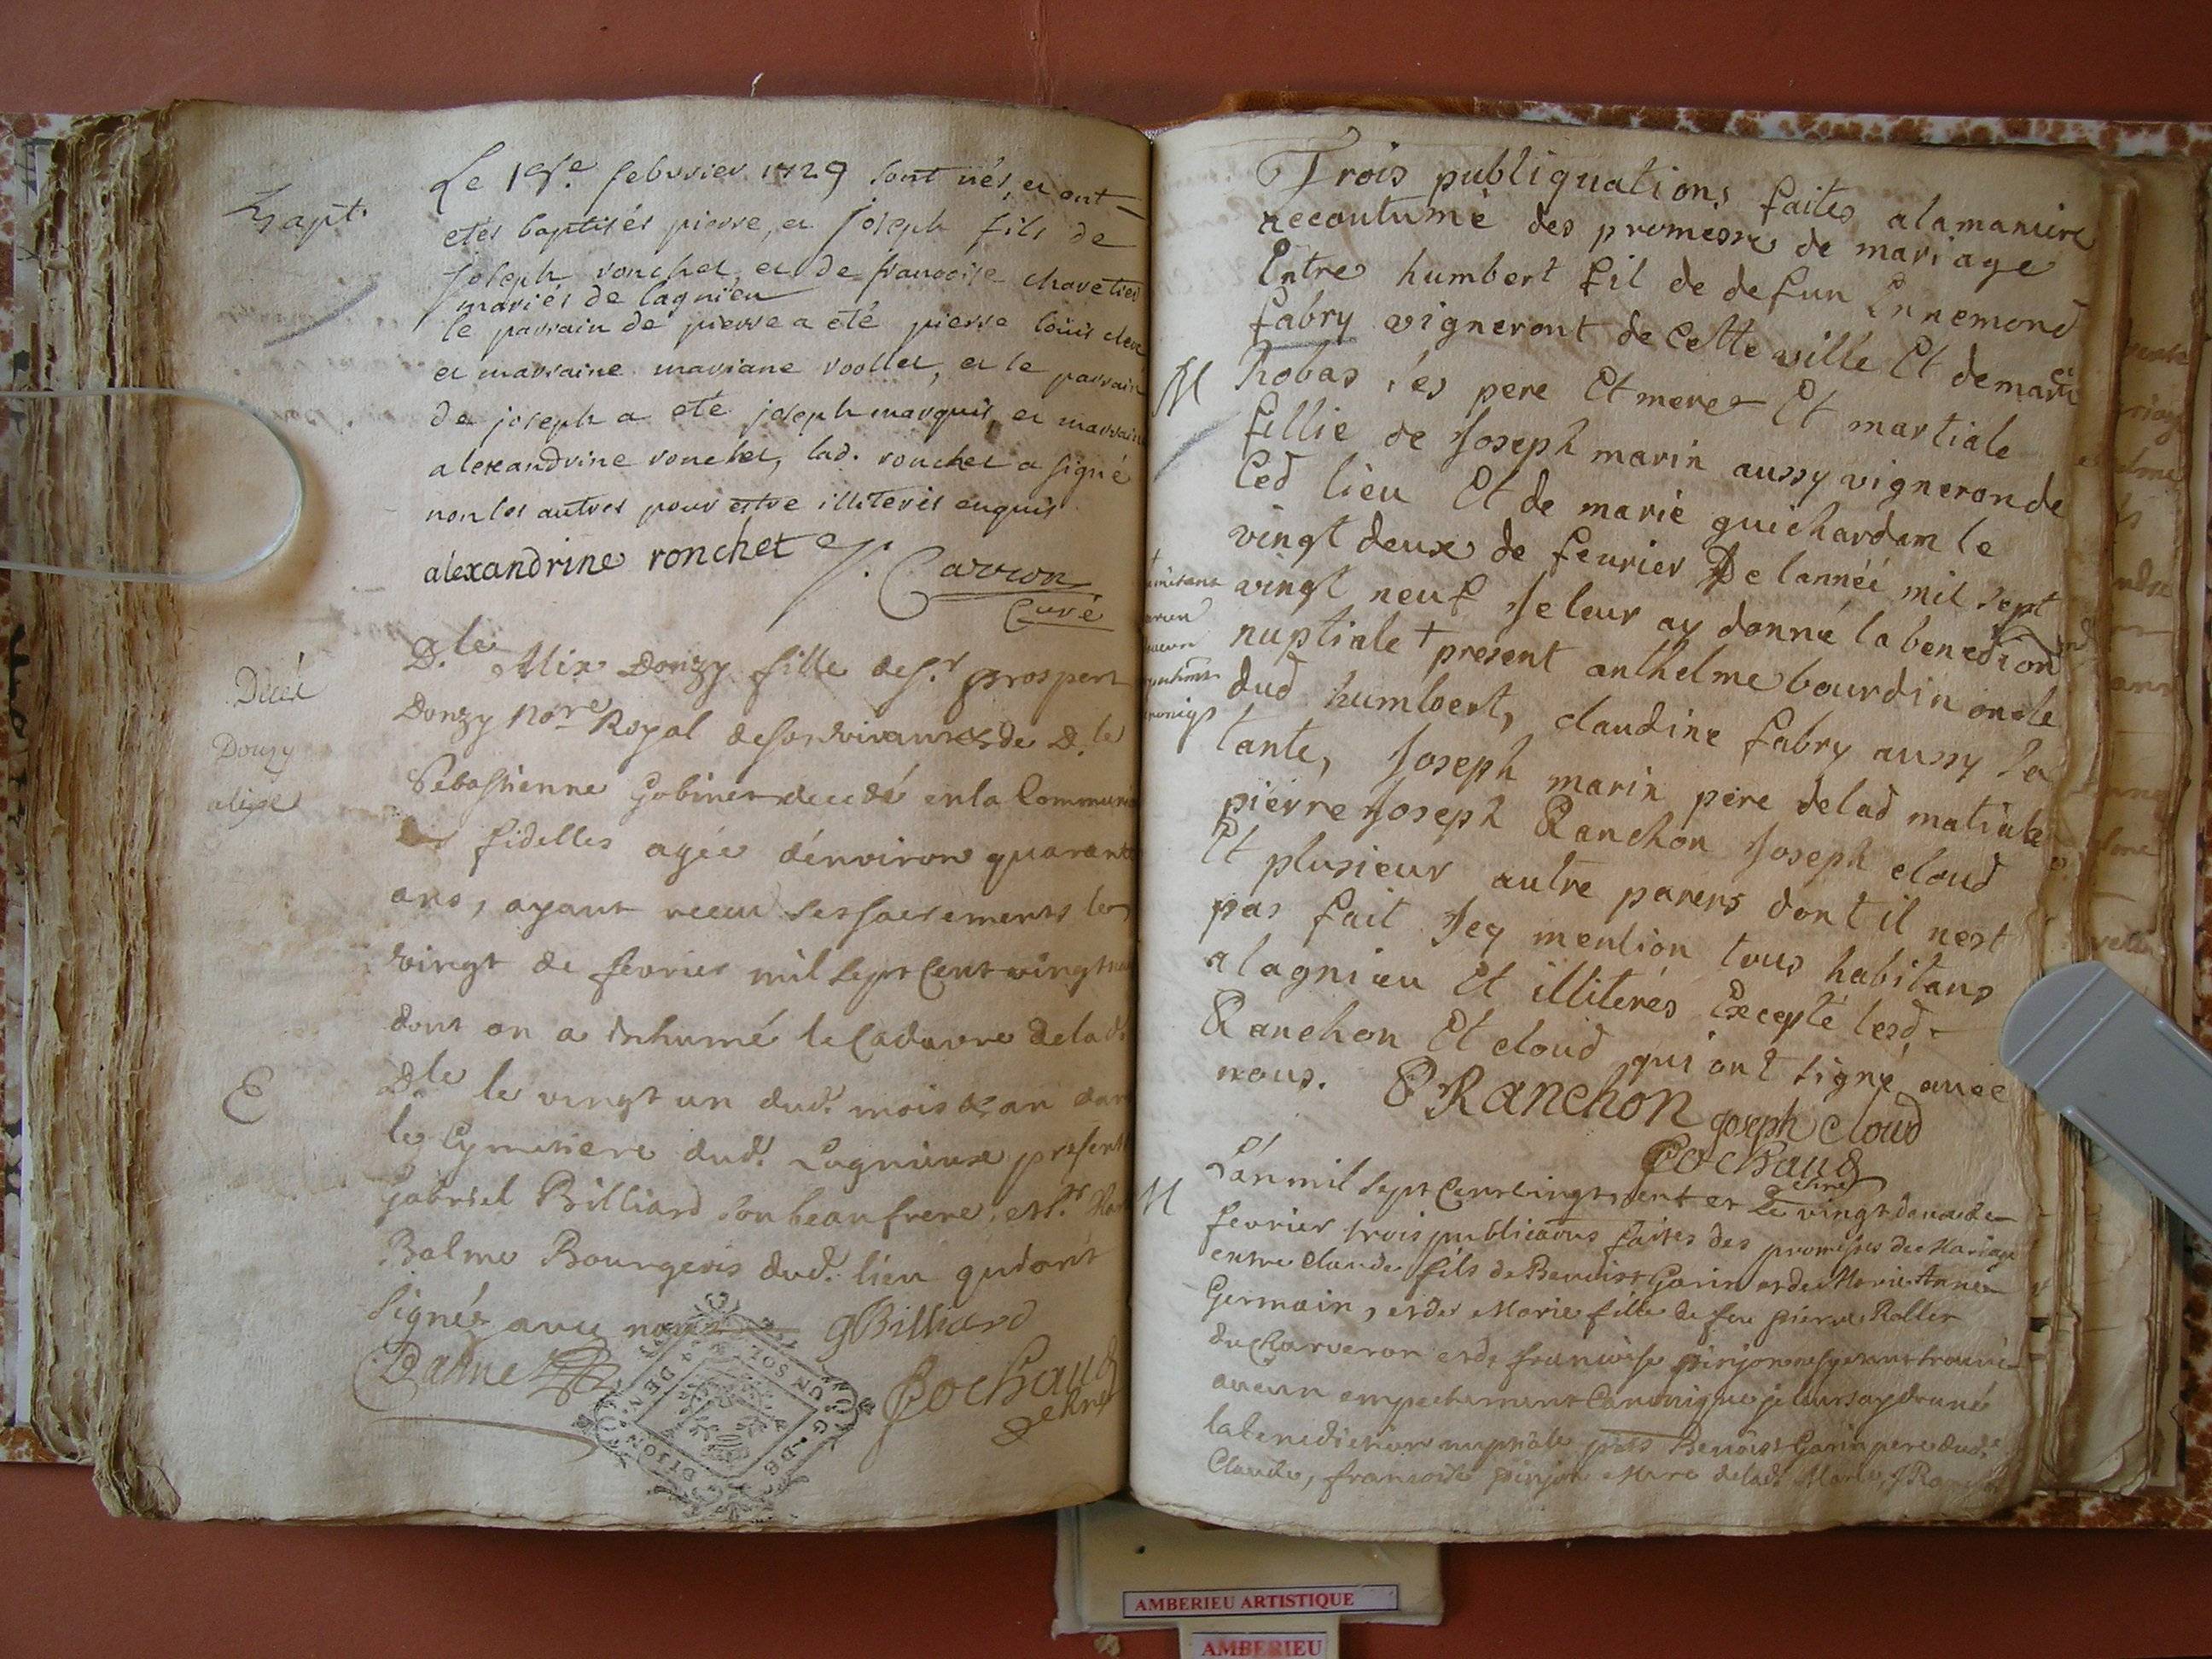 Bapt.
Le 19e. febvrier 1729 sont nés, et ont
etés baptisés pierre, et joseph fils de
joseph ronchet et de francoise charetier
mariés de lagnieu
le parrain de pierre a eté pierre loüis
et marraine mariane vollet, et le parrain
de joseph a eté joseph marquis, et marraine
alexandrine ronchet, lad. ronchet a signé
non les autres pour estre illiterés enquis
alexandrine ronchet
Carron
Curé
Décé
Donzy
alix
D.le Alix Donzy fille de s.r prospert
Donzy nore Royal de son vivant et de D.le
Sebastienne Gobinet decedé en la Commune
fidelles agée d'environ quarante
ans, ayant receu ses sacrements le
vingt de fevrier mil sept Cent vingt
dont on a Inhumé le Cadavre de lad.
E
D.le le vingt un dud. mois & an dans
le Cymetiere dud. Lagnieux present
Gabriel Billiard son beaufrere, et s.r
Balme Bourgeois dud. lieu qui ont
signés avec nous
GBilliard
Balme
Cochaud
UN SOL
G. DE
DIJON
Trois publiquations faites a la maniere
accoutumé des promesse de mariage
Entre humbert fil de defun Ennemond
fabry vigneront de Cette ville Et de marie
M
Robas ses pere Et mere Et martiale
fillie de Joseph marin aussy vigneron de
Ced lieu Et de marie guichardan le
vingt deux de fevrier De lannéé mil sept
vingt neuf Je leur ay donné la benediction
nuptiale + present anthelme bourdin oncle
dud humbert, claudine fabry aussy sa
tante, Joseph marin pere de lad matiale
pierre Joseph Ranchon Joseph cloud
Et plusieur autre parens dont il nest
pas fait Icy mention tous habitans
a lagnieu Et illiterés Excepté lesd
Ranchon Et cloud qui ont signé avec
nous.
P Ranchon
joseph cloud
Cochaud
M
L'an mil sept Cent vingt neuf et le vingt deux de
fevrier trois publications faites des promesses de Mariage
entre Claude fils de Benoist Garin et de Marie Anne
Germain, et de Marie fille de feu pierre Rollet
du Charveron et de francoise pinjon ne s'etant trouvé
aucun empechement Canonique je leurs ay donné
la benediction nuptiale pnts Benoist Garin pere dud.
Claude, francoise pinjon Mere de lad. Marie,
AMBERIEU ARTISTIQUE
AMBERIEU